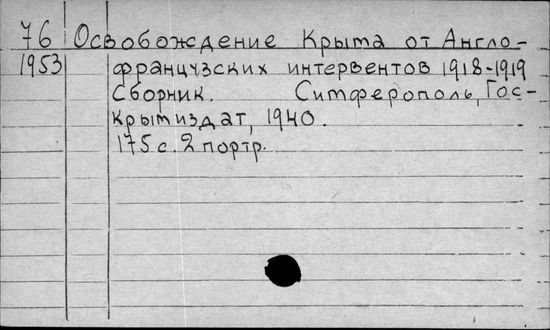 76 Освобождение Крыма от Англо-
1953 французских интервентов 1918-1919
Сборник. Ситферополь, Гос-
Крымиздат, 1940.
175 с. 2 портр.